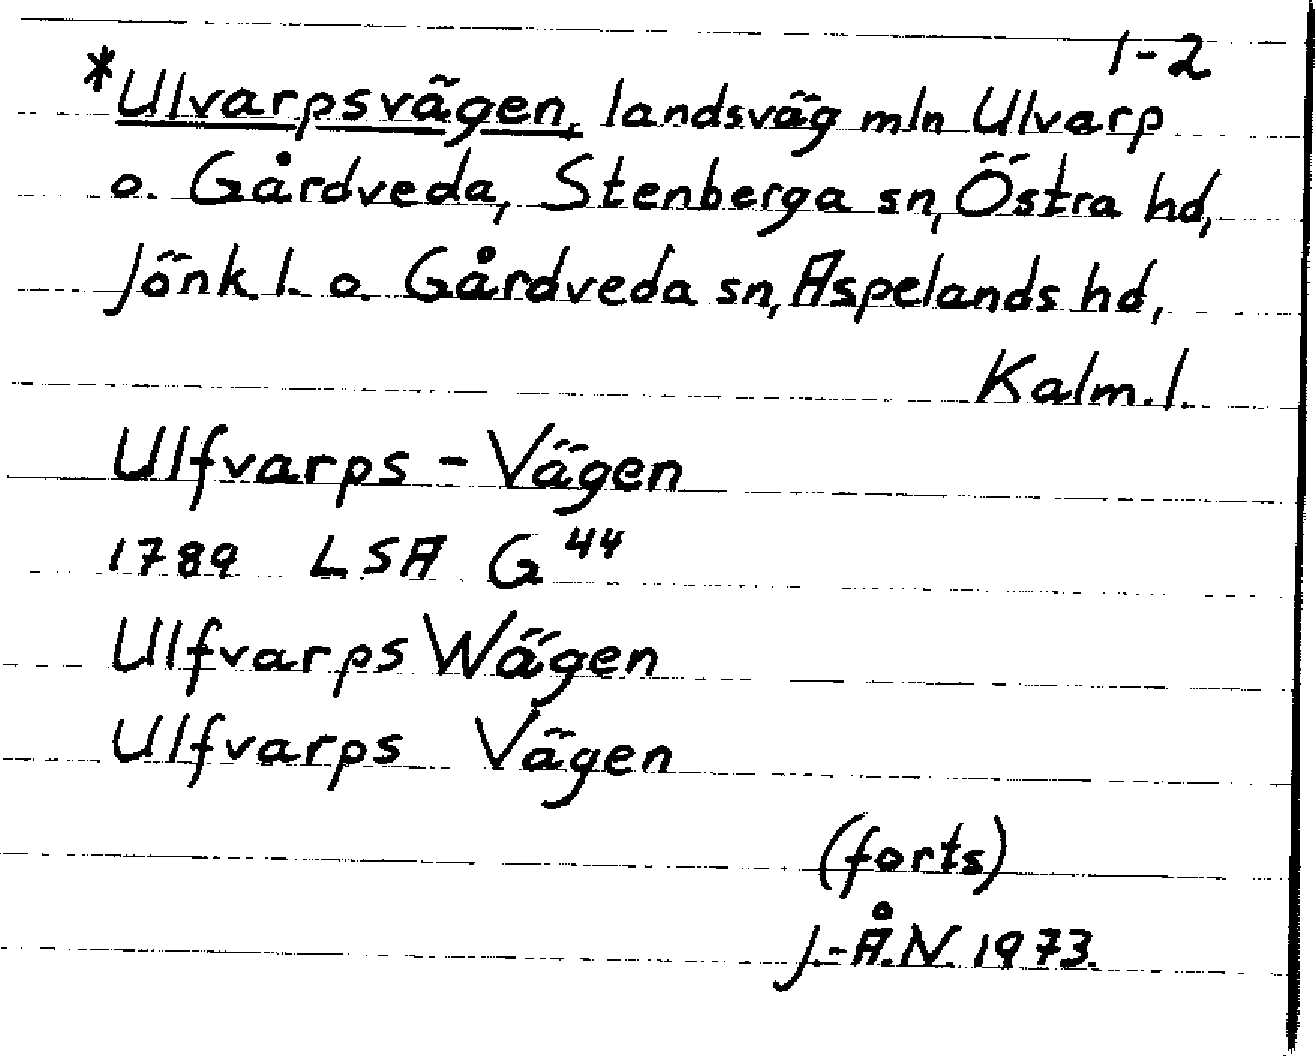 1-2
*Ulvarpsvägen, landsväg mln Ulvarp
o. Gårdveda, Stenberga sn, Östra hd,
Jönk. l. o. Gårdveda sn, Aspelands hd,
Kalm. l.
Ulfvarps - Vägen
1789 LSA G 44
Ulfvarps Wägen
Ulfvarps Vägen
(forts)
J.-Å.N. 1973.